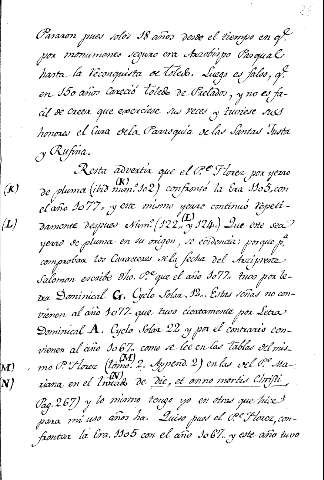 Pasaron pues solos 18 años desde el tiempo en q.e
por monumentos seguro era Arzobispo Pasqual
hasta la reconquista de Toledo. Luego es falso, q.e
en 150 años careció Toledo de Prelados, y no es fa-
cil de creer que exerciese sus veces y tuviese sus
honores el Cura de la Parroquia de las Santas Justa
y Rufina.
Resta advertir que el P.e Florez por yerro
(K) de pluma (ibid num.o 102) (K) confrontó la Era 1105 con
el año 1077. y este mismo yerro continuó repeti-
(L) damente despues Num.s (122, y 124.) (L) Que este sea
yerro de pluma en su origen, se evidencia: porque p.a
comprobar los Caracteres de la fecha del Arcipreste
Salomon escribe dho. P.e que el año 1077. tuvo por le-
tra Dominical G. Cyclo Solar 12.. Estas señas no con-
vienen al año 1077 que tuvo ciertamente por Letra
Dominical A. Cyclo Solar 22 y por el contrario con-
vienen al año 1067. como se lee en las Tablas del mis-
(M) mo P.e Florez (tomo 2. Append. 2) (M) en las del P.e Ma-
(N) riana en el tratado de die, et anno mortis Christi (N)
Pag. 267) y lo mismo tengo yo en otras que hize
para mi uso años ha. Quiso pues el P.e Florez, con-
frontar la Era 1105 con el año 1067. y este año tuvo